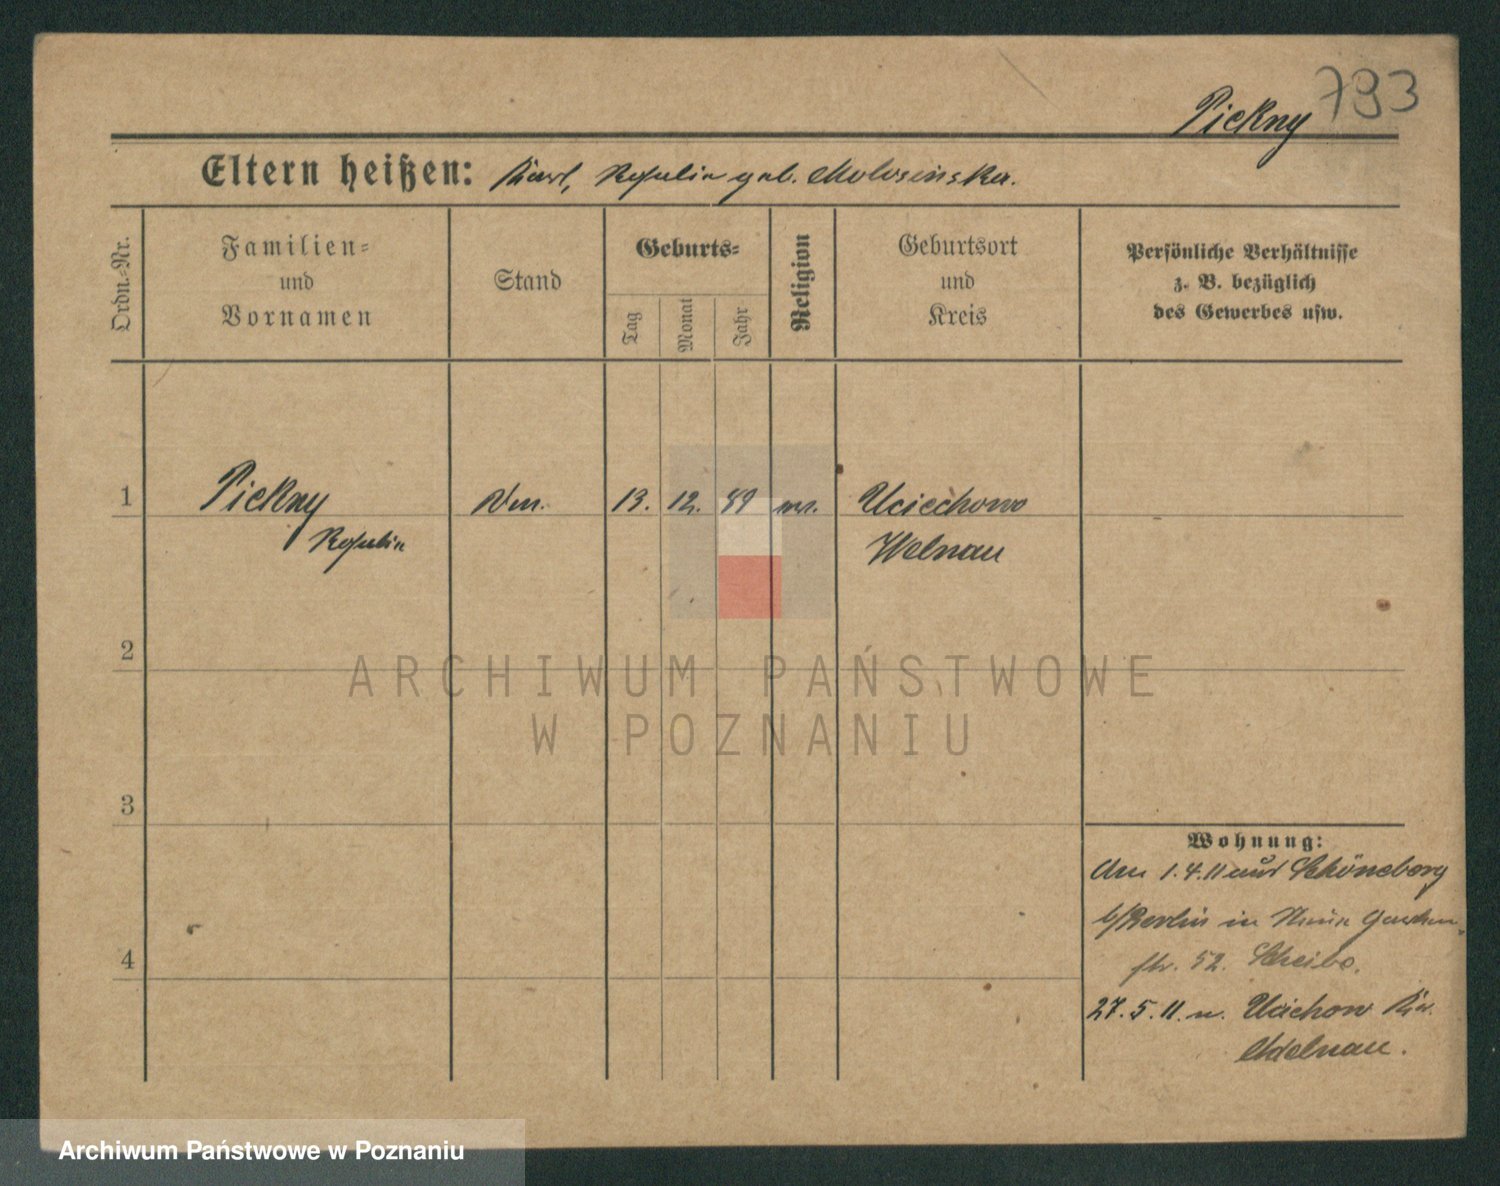 793
Piekny
Eltern heißen: Karl, Rosalia geb. Molosinska.
Ordn.-Nr.
Familien- und Vornamen
Stand
Geburts-
Tag
Monat
Jahr
Religion
Geburtsort und Kreis
Persönliche Verhältnisse
z. B. bezüglich
des Gewerbes usw.
1 Piekny 13. 12. 89 Uciechowo
Rosalie Welnau
2
ARCHIWUM PAŃSTWOWE
W POZNANIU
3
Wohnung:
Am 1.4.11 auf Schöneberg
b/Berlin in
str. 52.
4
27.5.11. n. Uciechow Kr.
Adelnau.
Archiwum Państwowe w Poznaniu